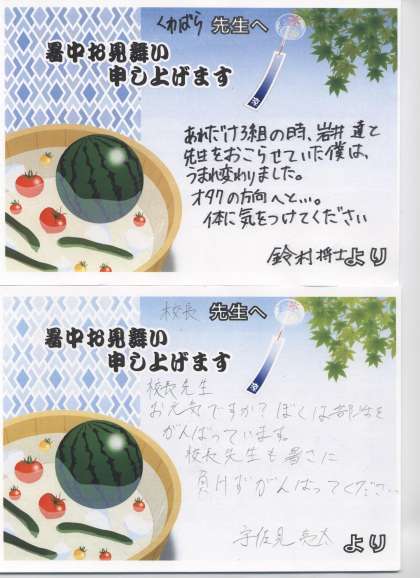 くわばら 先生へ
暑中お見舞い
申し上げます
あれだけ3組の時、岩井達と
先生をおこらせていた僕は、
うまれ変わりました。
オタクの方向へと…。
体に気をつけてください
鈴村将士より
校長 先生へ
暑中お見舞い
申し上げます
校長先生
お元気ですか?ぼくは部活を
がんばっています。
校長先生も暑さに
負けずがんばってください。
宇佐見 亮太 より